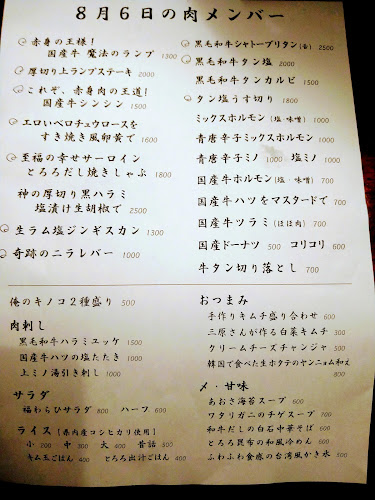 ８月６日の肉メンバー
赤身の王様！
国産牛 魔法のランプ 1300
厚切り上ランプステーキ 2000
これぞ、赤身肉の王道！
国産牛シンシン 1500
エロいベロチュウロースを
すき焼き風卵黄で 1600
至福の幸せサーロイン
とろろだし焼きしゃぶ 1800
神の厚切り黒ハラミ
塩漬け生胡椒で 2500
生ラム塩ジンギスカン 1300
奇跡のニラレバー 1000
黒毛和牛シャトーブリアン(金) 2500
黒毛和牛タン塩 2000
黒毛和牛タンカルビ 1500
タン塩うす切り 1800
ミックスホルモン (塩・味噌) 1000
青唐辛子ミックスホルモン 1000
青唐辛子ミノ 1000 塩ミノ 1000
国産牛ホルモン (塩・味噌) 700
国産牛ハツをマスタードで 700
国産牛ツラミ (ほほ肉) 700
国産ドーナツ 500 コリコリ 600
牛タン切り落とし 700
俺のキノコ２種盛り 500
肉刺し
黒毛和牛ハラミユッケ 1500
国産牛ハツの塩たたき 1000
上ミノ湯引き刺し 1000
サラダ
福わらひサラダ 800 ハーフ 600
ライス【県内産コシヒカリ使用】
小 200 中 300 大 400 昔話 500
キム玉ごはん 400 とろろ出汁ごはん 400
おつまみ
手作りキムチ盛り合わせ 600
三原さんが作る白菜キムチ 300
クリームチーズチャンジャ 500
韓国で食べた生ホタテのヤンニョム和え
800
〆・甘味
あおさ海苔スープ 600
ワタリガニのチゲスープ 700
和牛だしの白石中華そば 600
とろろ昆布の和風冷めん 600
ふわふわ食感の台湾風かき氷 500